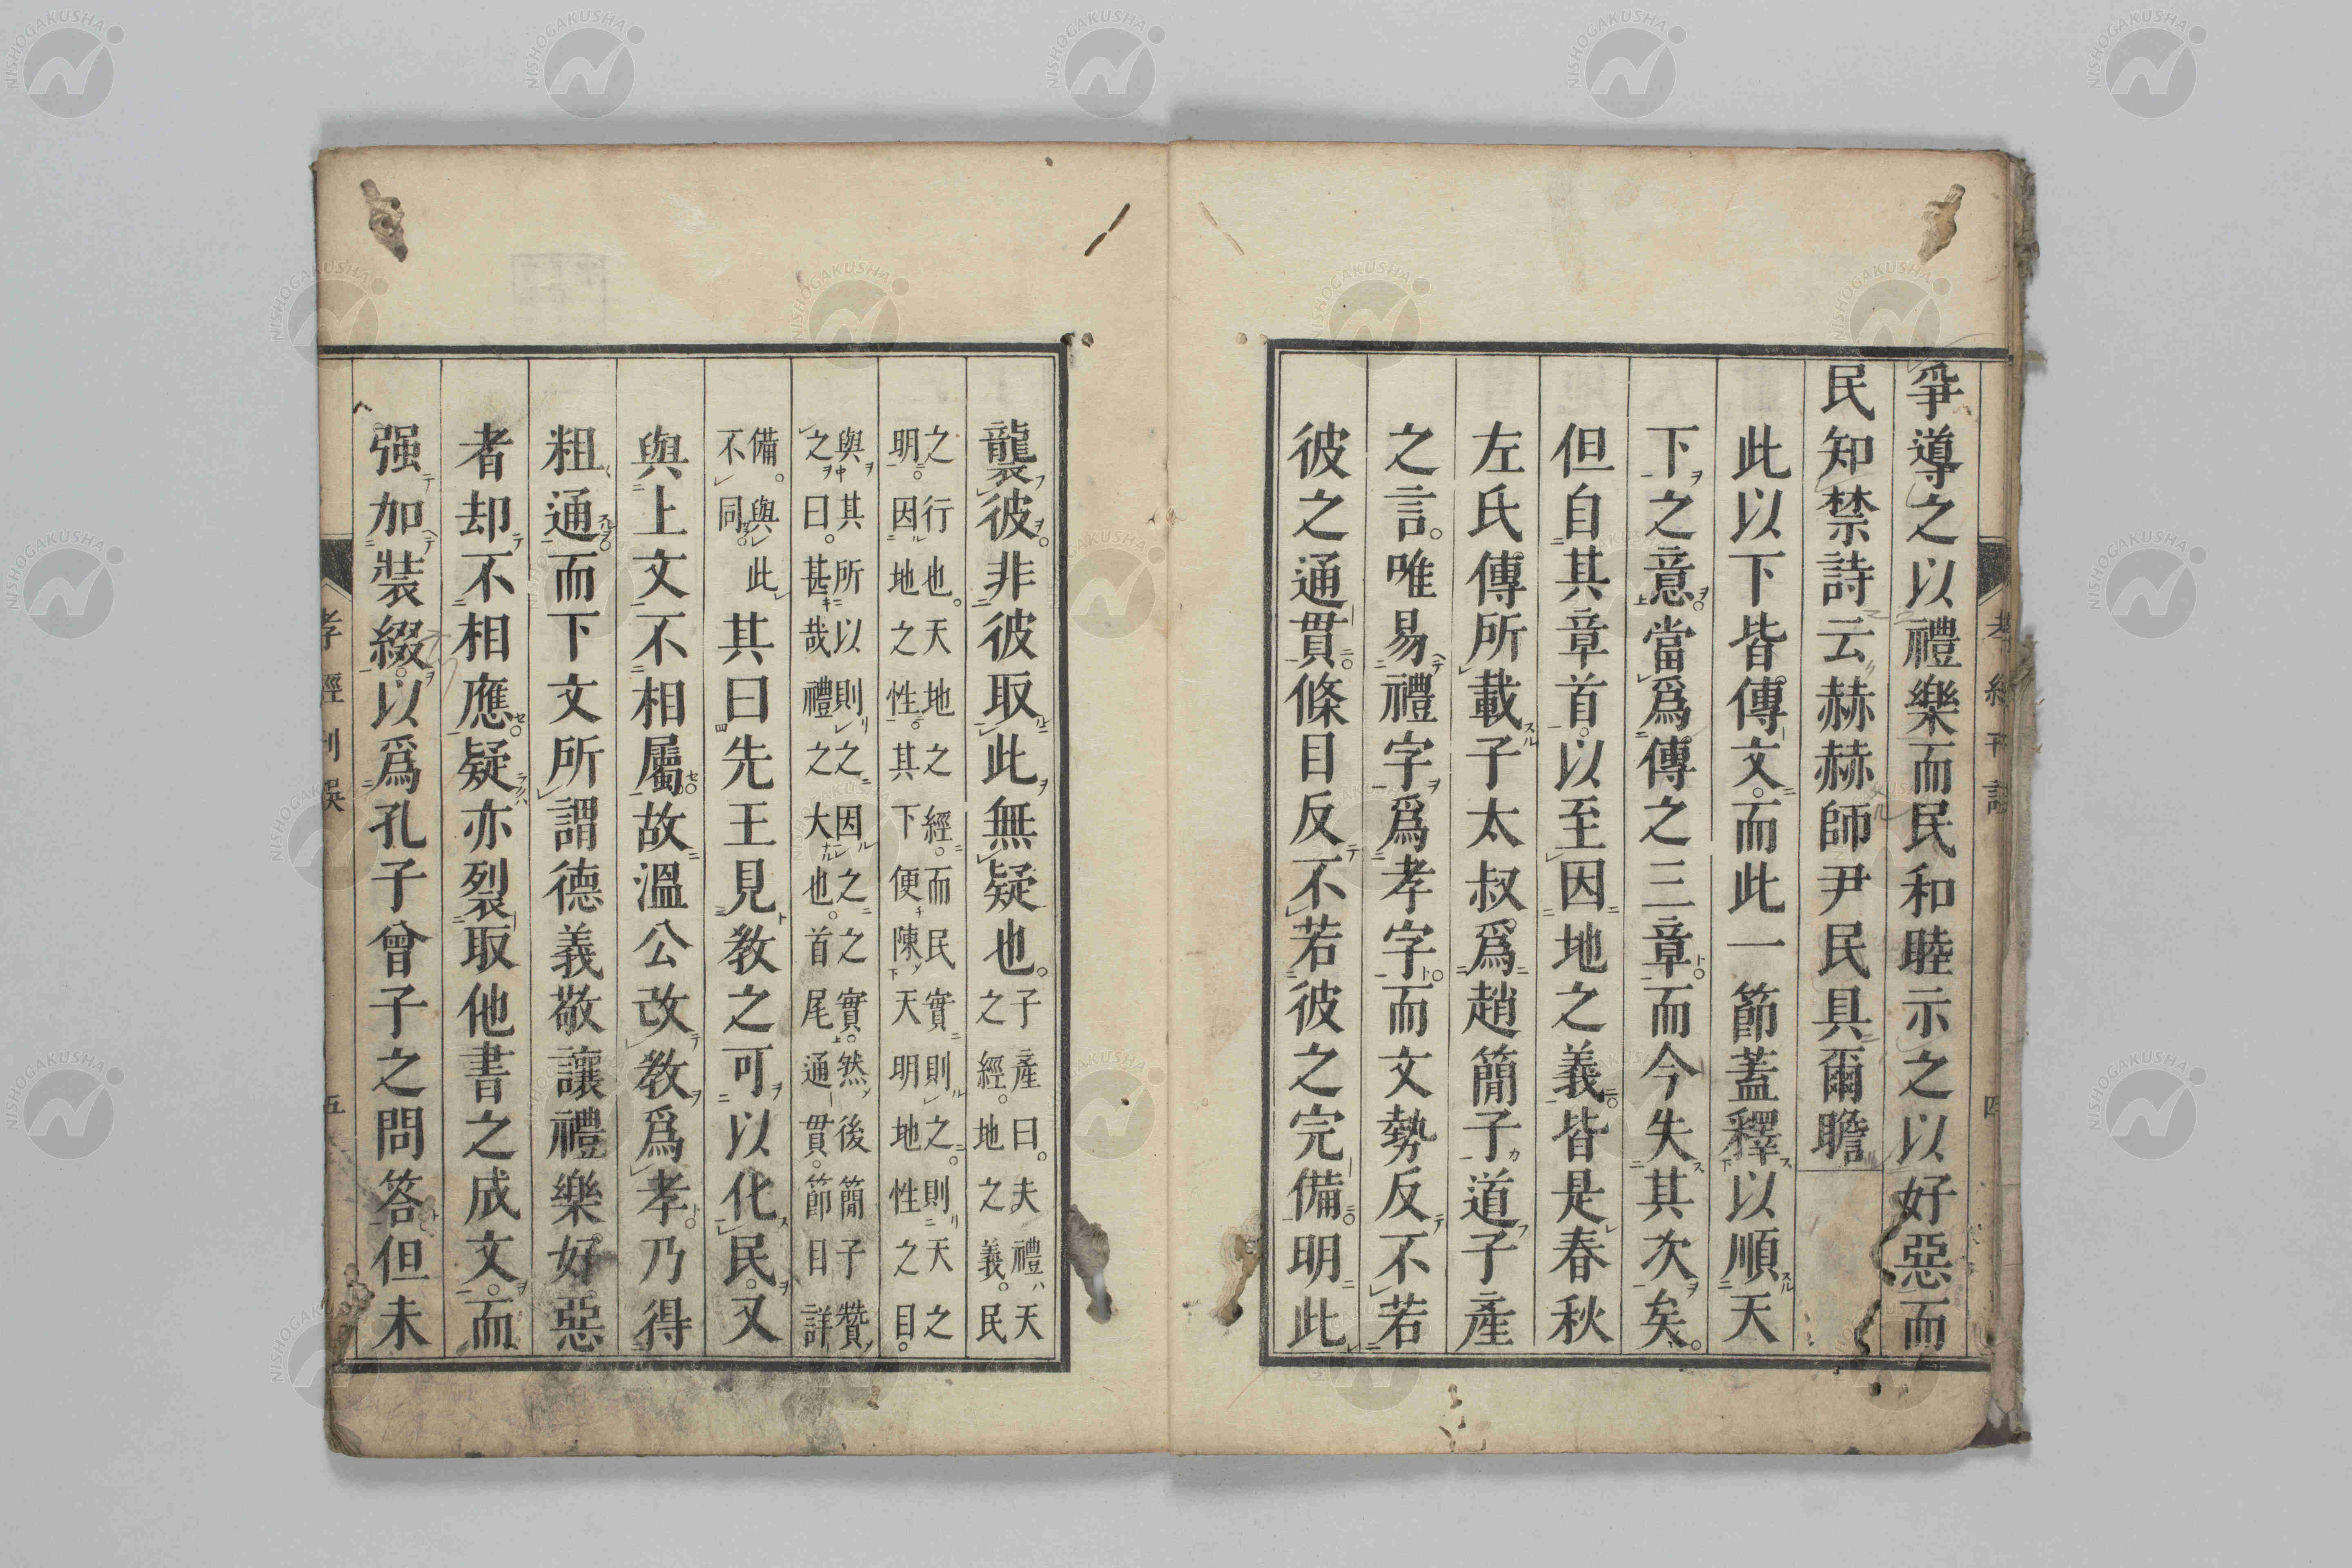 爭導之以禮樂而民和睦示之以好惡而
民知禁詩云赫赫師尹民具爾瞻
此以下皆傳文而此一節蓋釋以順天
下之意當爲傳之三章而今失其次矣
但自其章首以至因地之義皆是春秋
左氏傳所載子太叔爲趙簡子道子產
之言唯易禮字爲孝字而文勢反不若
彼之通貫條目反不若彼之完備明此
襲彼非彼取此無疑也子產曰夫禮天
之經地之義民
之行也天地之經而民實則之則天之
明因地之性其下便陳天明地性之目
與其所以則之因之之實然後簡子贊
之曰甚哉禮之大也首尾通貫節目詳
備與此
不同
其曰先王見敎之可以化民又
與上文不相屬故溫公改敎爲孝乃得
粗通而下文所謂德義敬讓禮樂好惡
者却不相應疑亦裂取他書之成文而
强加裝綴以爲孔子曾子之問答但未
孝經刊誤
五
NISHOGAKUSHA